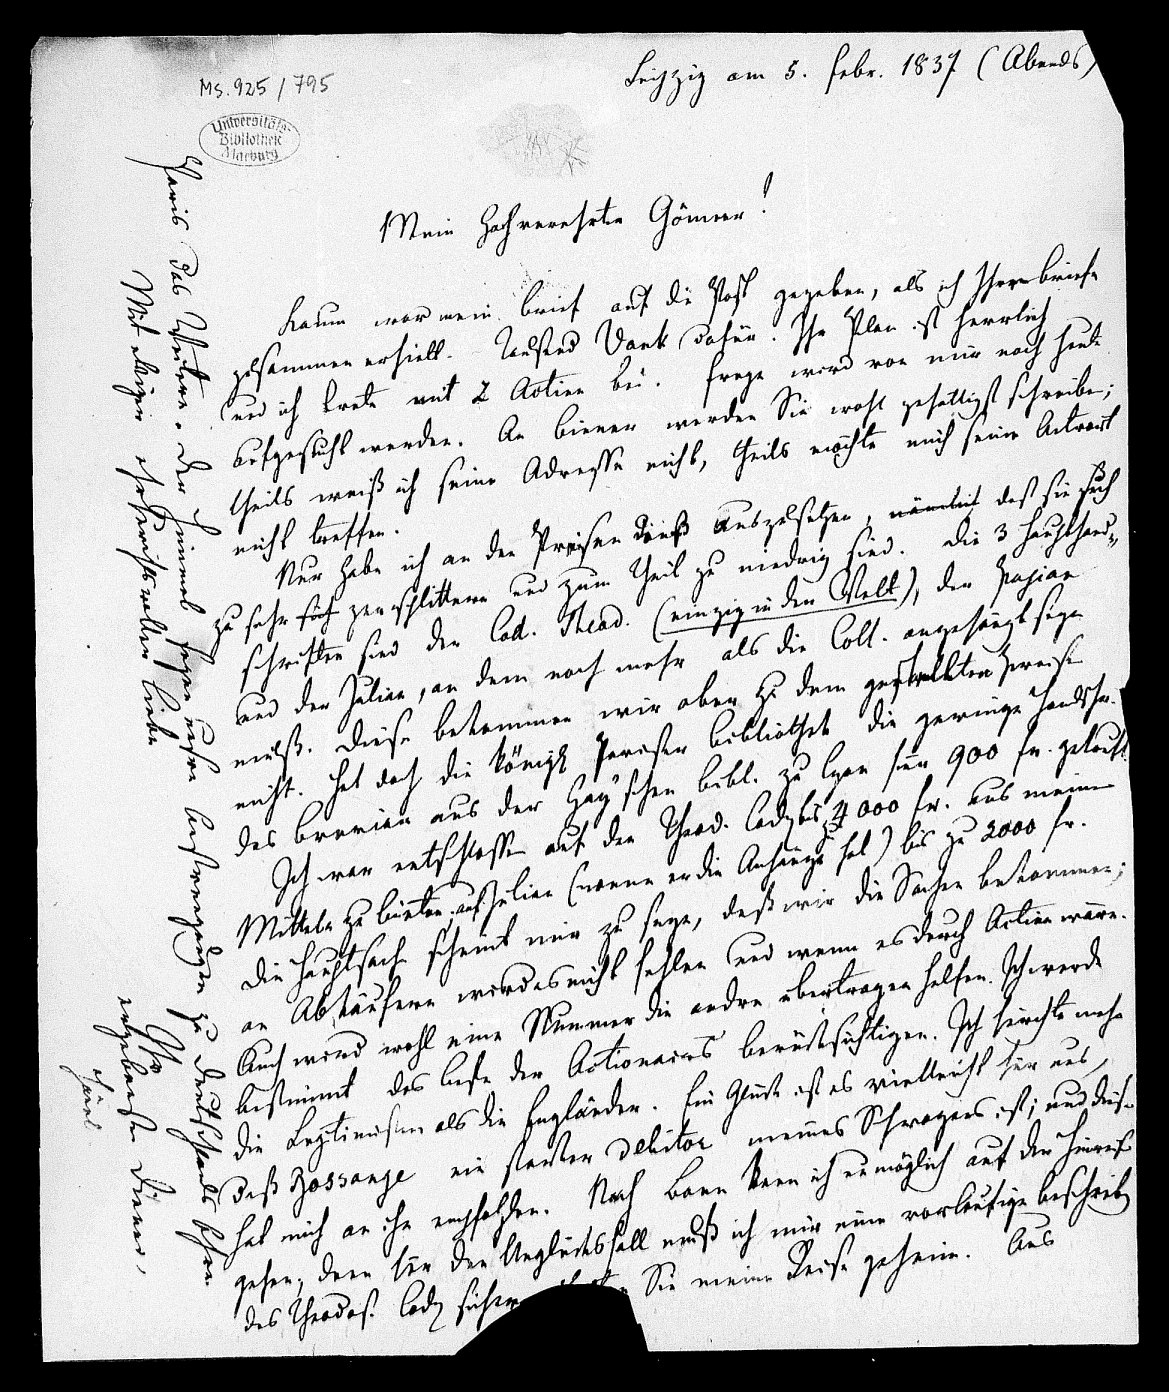 Ms. 925 / 795
Universitäts-
Bibliothek
Marburg
Leipzig am 5. Febr. 1837 (Abends)
Mein hochverehrter Gönner!
Kaum war mein Brief auf die Post gegeben, als ich Ihre Briefe
zusammen erhielt. Tausend Dank dafür. Ihr Plan ist herrlich
und ich trete mit 2 Actien bei. Frege wird von mir noch heute
aufgesucht werden. An Biener werden Sie wohl gefälligst schreiben;
theils weiß ich seine Adresse nicht, theils möchte mich seine Antwort
nicht treffen.
Nur habe ich an den Preisen dieß auszusetzen, nämlich daß sie sich
zu sehr zersplittern und zum Theil zu niedrig sind. Die 3 Haupthand-
schriften sind der Cod. Theod. (einzig in der Welt), der Papian
und der Julian, an dem noch mehr als die Coll. angehängt seyn
muß. Diese bekommen wir aber zu dem gestellten Preise
nicht. Hat doch die königl. Pariser Bibliothek die geringe Handschr.
des Breviar aus der Hay'schen Bibl. zu Lyon für 900 fr. gekauft.
Ich war entschlossen auf den Theod. Codex bis zu 4000 fr. aus meinen
Mitteln zu bieten, auf Julian (wenn er die Anhänge hat) bis zu 2000 fr.
Die Hauptsache scheint mir zu seyn, daß wir die Sachen bekommen;
an Abkäufern wird es nicht fehlen und wenn es durch Actien wäre.
Auch wird wohl eine Nummer die andre übertragen helfen. Ich werde
bestimmt das Beste der Actionairs berücksichtigen. Ich fürchte mehr
die Legitimisten als die Engländer. Ein Glück ist es vielleicht für uns,
daß Bossange ein starker Debitor meines Schwagers ist; und dieser
hat mich an ihn empfohlen. Nach Bonn kann ich unmöglich auf der Hinreise
gehen; denn für den Unglücksfall muß ich mir eine vorläufige Beschreib.
des Theodos. Cod. Sie meine Reise geheim. Aus
Paris das Weitere. Der Himmel segne unsre Bestrebungen zu Deutschlands Ehre.
Mit ewiger ehrfurchtsvoller Liebe
Ihr
ergebenster Diener,
Hänel